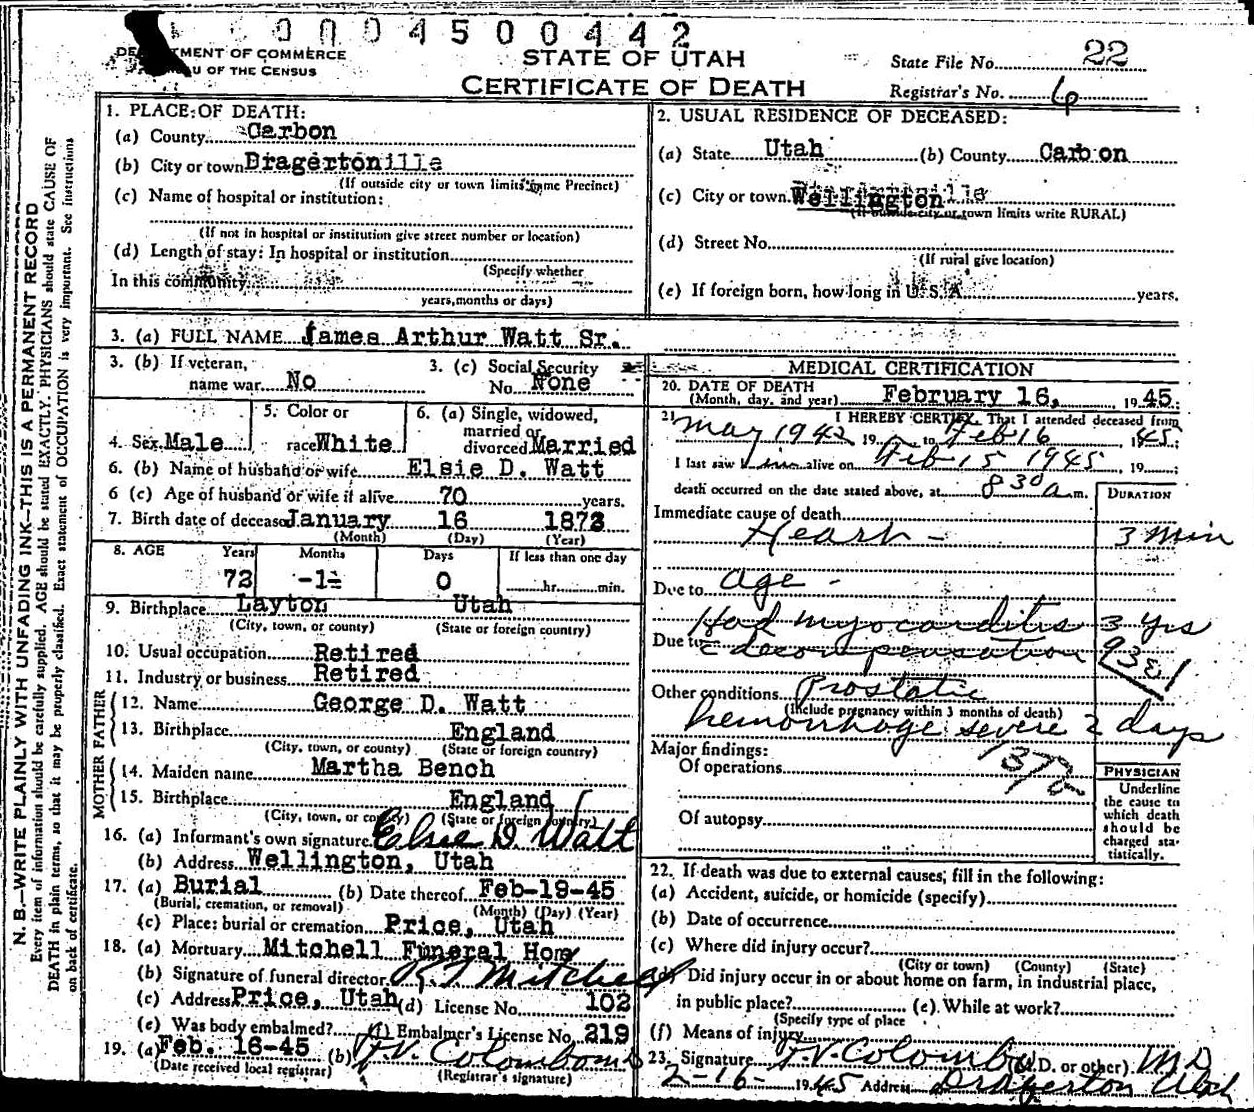 0004500442
DEPARTMENT OF COMMERCE
BUREAU OF THE CENSUS
STATE OF UTAH
CERTIFICATE OF DEATH
State File No. 22
Registrar's No. 6
1. PLACE OF DEATH:
(a) County Carbon
(b) City or town
(If outside city or town limits name Precinct)
(c) Name of hospital or institution:
(If not in hospital or institution give street number or location)
(d) Length of stay: In hospital or institution
(Specify whether
In this community
years, months or days)
2. USUAL RESIDENCE OF DECEASED:
(a) State Utah (b) County Carbon
(c) City or town Wellington
(If outside city or town limits write RURAL)
(d) Street No.
(If rural give location)
(e) If foreign born, how long in U. S. A. years.
3. (a) FULL NAME James Arthur Watt Sr.
3. (b) If veteran,
name war No
3. (c) Social Security
No. None
4. Sex Male
5. Color or
race White
6. (a) Single, widowed,
married or
divorced Married
6. (b) Name of husband or wife Elsie D. Watt
6 (c) Age of husband or wife if alive 70 years.
7. Birth date of deceased January 16 1873
(Month) (Day) (Year)
8. AGE Years Months Days If less than one day
72 -1- 0 hr. min.
9. Birthplace Layton Utah
(City, town, or county) (State or foreign country)
10. Usual occupation Retired
11. Industry or business Retired
FATHER
12. Name George D. Watt
13. Birthplace England
(City, town, or county) (State or foreign country)
MOTHER
14. Maiden name Martha Bench
15. Birthplace England
(City, town, or county) (State or foreign country)
16. (a) Informant's own signature Elsie D. Watt
(b) Address Wellington, Utah
17. (a) Burial (b) Date thereof Feb-19-45
(Burial, cremation, or removal) (Month) (Day) (Year)
(c) Place: burial or cremation Price, Utah
18. (a) Mortuary Mitchell Funeral Home
(b) Signature of funeral director Mitchell
(c) Address Price, Utah (d) License No. 102
(e) Was body embalmed? (f) Embalmer's License No. 219
19. (a) Feb. 16-45 (b) F.V. Colombo MD
(Date received local registrar) (Registrar's signature)
MEDICAL CERTIFICATION
20. DATE OF DEATH
(Month, day, and year) February 16, 1945
21. I HEREBY CERTIFY, That I attended deceased from
May 1942 19 to Feb 16 1945
I last saw him alive on Feb 15 1945, 19
death occurred on the date stated above, at 8 30 a m.
DURATION
Immediate cause of death
Heart - 3 min
Due to age -
Had myocarditis 3 yrs
Due to c decompensation
Other conditions Prostatic
(Include pregnancy within 3 months of death)
hemorrhage severe 2 days
Major findings:
Of operations
Of autopsy
PHYSICIAN
Underline
the cause to
which death
should be
charged sta-
tistically.
22. If death was due to external causes, fill in the following:
(a) Accident, suicide, or homicide (specify)
(b) Date of occurrence
(c) Where did injury occur?
(City or town) (County) (State)
Did injury occur in or about home on farm, in industrial place,
in public place? (e) While at work?
(Specify type of place
(f) Means of injury
23. Signature F.V. Colombo (M.D. or other) MD
2-16- 1945 Address Dragerton Utah
N. B.—WRITE PLAINLY WITH UNFADING INK—THIS IS A PERMANENT RECORD
Every item of information should be carefully supplied. AGE should be stated EXACTLY. PHYSICIANS should state CAUSE OF
DEATH in plain terms, so that it may be properly classified. Exact statement of OCCUPATION is very important. See instructions
on back of certificate.